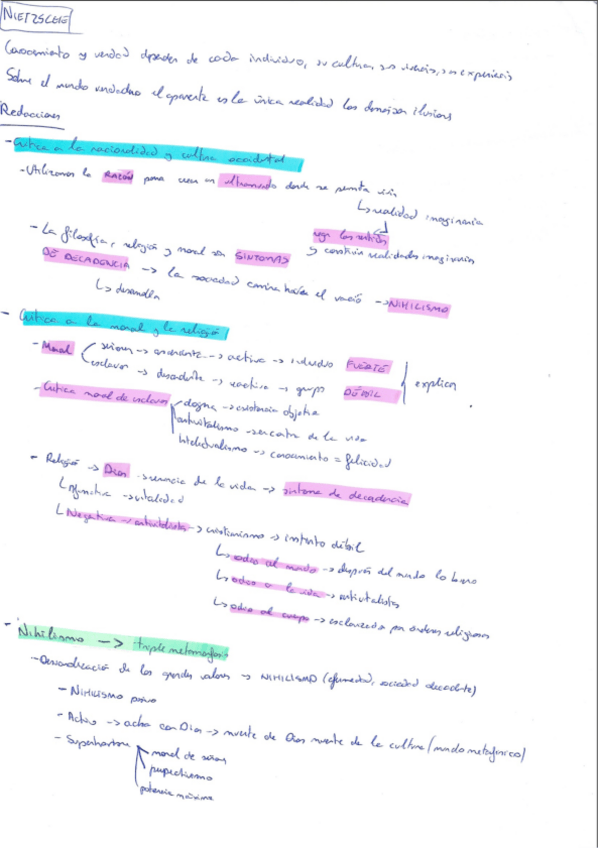 NIETZSCHE
Conocimiento y verdad dependen de cada individuo, su cultura, sus intereses, sus experiencias
Sobre el mundo verdadero el aparente es la única realidad las demás son ilusiones
Redacciones
- Crítica a la racionalidad y cultura occidental
- Utilizamos la RAZÓN para crear un ultramundo donde se permita vivir
↳ realidad imaginaria
niega los sentidos
y construir realidades imaginarias
- La filosofía, religión y moral son SÍNTOMAS
DE DECADENCIA → la sociedad camina hacia el vacío → NIHILISMO
↳ desarrolla
- Crítica a la moral y la religión
- Moral señores → ascendente → activa → individuo FUERTE
esclavos → descendente → reactiva → grupo DÉBIL
explicar
- Crítica moral de esclavos dogma → existencia objetiva
antivitalismo → en contra de la vida
Intelectualismo → conocimiento = felicidad
- Religión → Dios → renuncia de la vida → síntoma de decadencia
↳ Afirmativa → vitalidad
↳ Negativa → antivitalista → cristianismo → instinto débil
↳ odio al mundo → después del mundo lo bueno
↳ odio a la vida → antivitalistas
↳ odio al cuerpo → esclavizados por órdenes religiosos
- Nihilismo → triple metamorfosis
- Desvalorización de los grandes valores → NIHILISMO (enfermedad, sociedad decadente)
- Nihilismo pasivo
- Activo → acaba con Dios → muerte de Dios muerte de la cultura (mundo metafísico)
- Superhombre
moral de señores
perspectivismo
potencia máxima